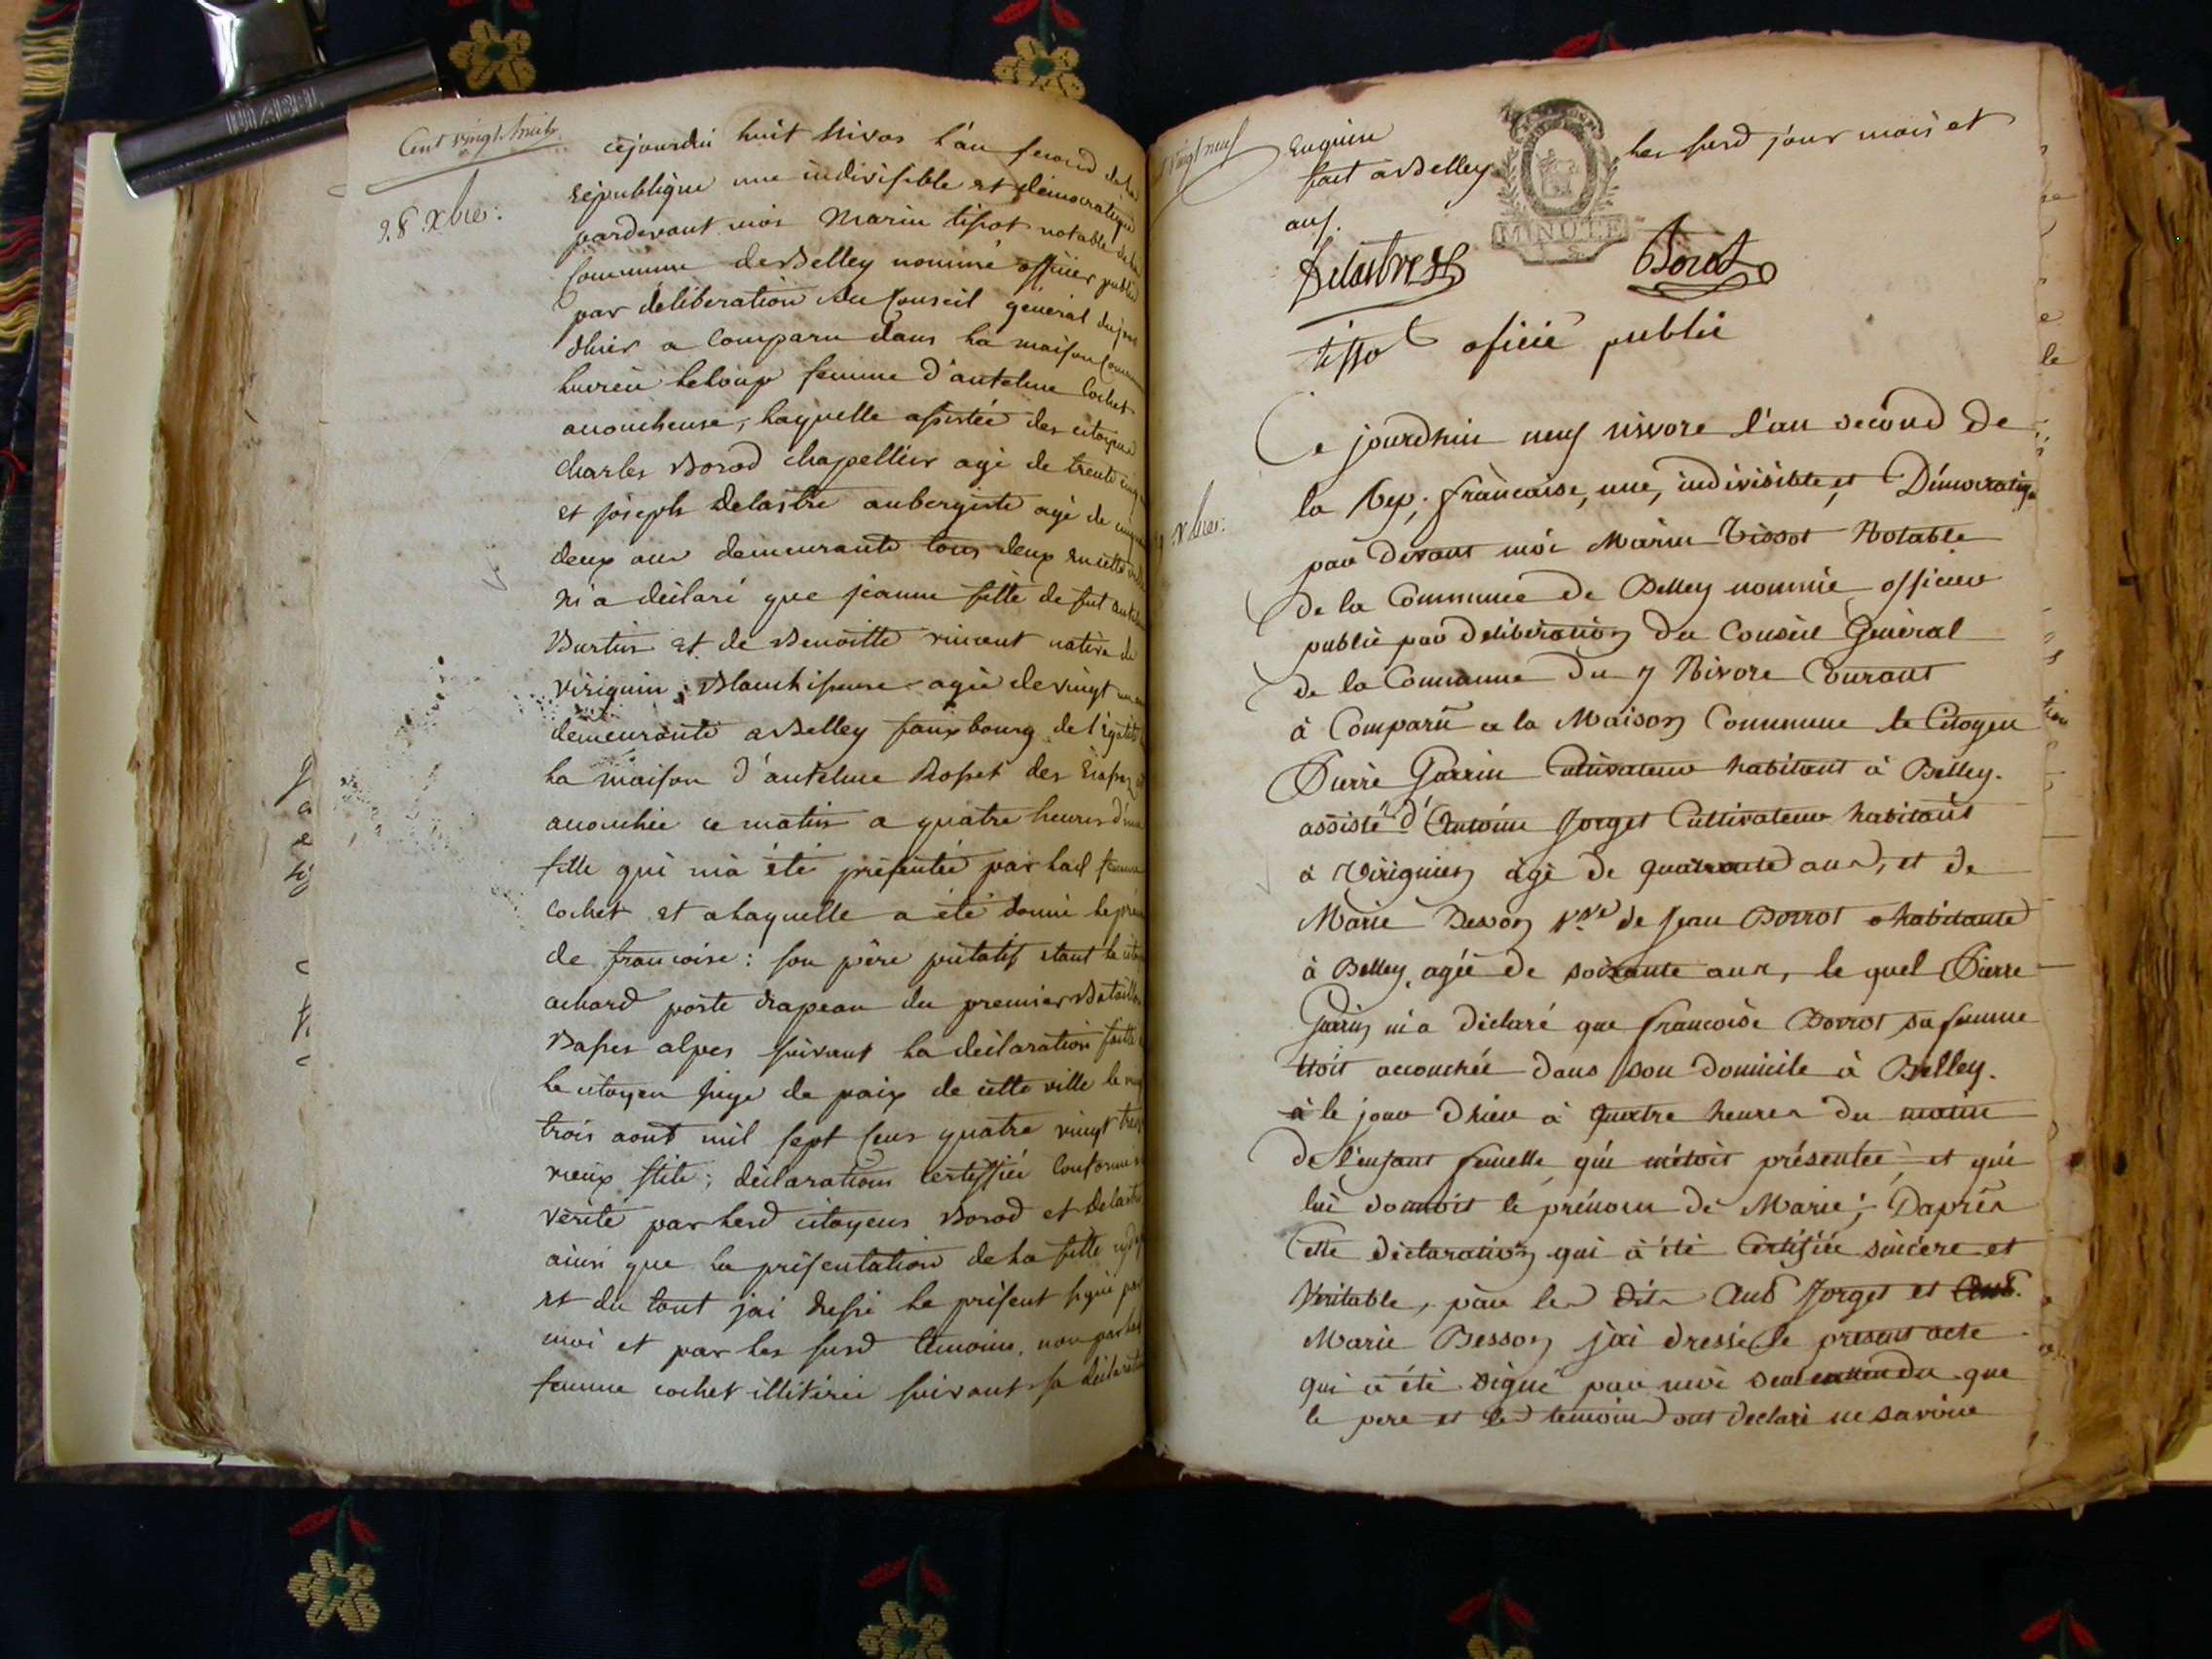 Cent vingt huit
28 Xbre:
cejourdui huit Nivos l'an second de la
république une indivisible et démocratique
pardevant moi Marin tisot notable de la
commune de Belley nommé officier public
par déliberation du Conseil général du jour
dhier a comparu dans la maison Commune
leloup femme d'antelme Cochet
acoucheuse, laquelle assistée des citoyens
Charles Borod chapellier agé de trente cinq
et joseph delastre aubergiste agé de
deux ans demeurants tous deux en cette ville
m'a déclaré que jeanne fille de fut
Burtin et de Benoitte vincent native de
virignin, Blanchiseuse agée de vingt
demeurante a Belley fauxbourg de l'égalité
la maison d'antelme Rosset des
acouchée ce matin a quatre heures d'une
fille qui m'a été présentée par lad femme
cochet et a laquelle a été donné le prénom
de francoise: son père putatif étant le
achard porte drapeau du premier Bataillon
Basses alpes suivant la déclaration faite
le citoyen juge de paix de cette ville le
trois aout mil sept cens quatre vingt
vieux stile; déclarations certiffiée conforme
vérité par lesd citoyens Borod et delastre
ainsi que la présentation de la fille
et du tout j'ai dressé le présent signé par
moi et par les susd témoins, non par lad
femme cochet illitérée suivant sa déclaration
vingt neuf
Xbre:
Enquise
fait a Belley les susd jour mois et
an.
MINUTE
Delastre Borod
tissot oficié publié
Ce jourdhui neuf nivore l'an second de
la Rep; francaise, une, indivisible, et Démocratiq
par devant moi Marin Tissot Notable
de la Commune de Belley nommé officier
public par deliberation du Conseil Général
de la Commune du 7 Nivore Courant
à Comparû a la Maison Commune le Citoyen
Pierre Garrin Cultivateur habitant à Belley.
assisté d'Antoine Jorget Cultivateur habitant
à Virignin agé de quarante ans, et de
Marie Besson Vve de Jean Borrot habitante
à Belley, agée de soixante ans, le quel Pierre
Garrin m'a déclaré que francoise Borrot sa femme
étoit accouchée dans son domicile à Belley.
à le jour d'hier à quatre heures du matin
de l'enfant femelle qui m'étoit présentée, et qui
lui donnoit le prénom de Marie; Daprès
Cette déclaration qui à été Certifiée sincère et
Véritable, par les dits Ant Jorget et Ant.
Marie Besson j'ai dressé le présent acte
qui à été signé par moi seul entendu que
le pere et les temoins ont declaré ne savoir